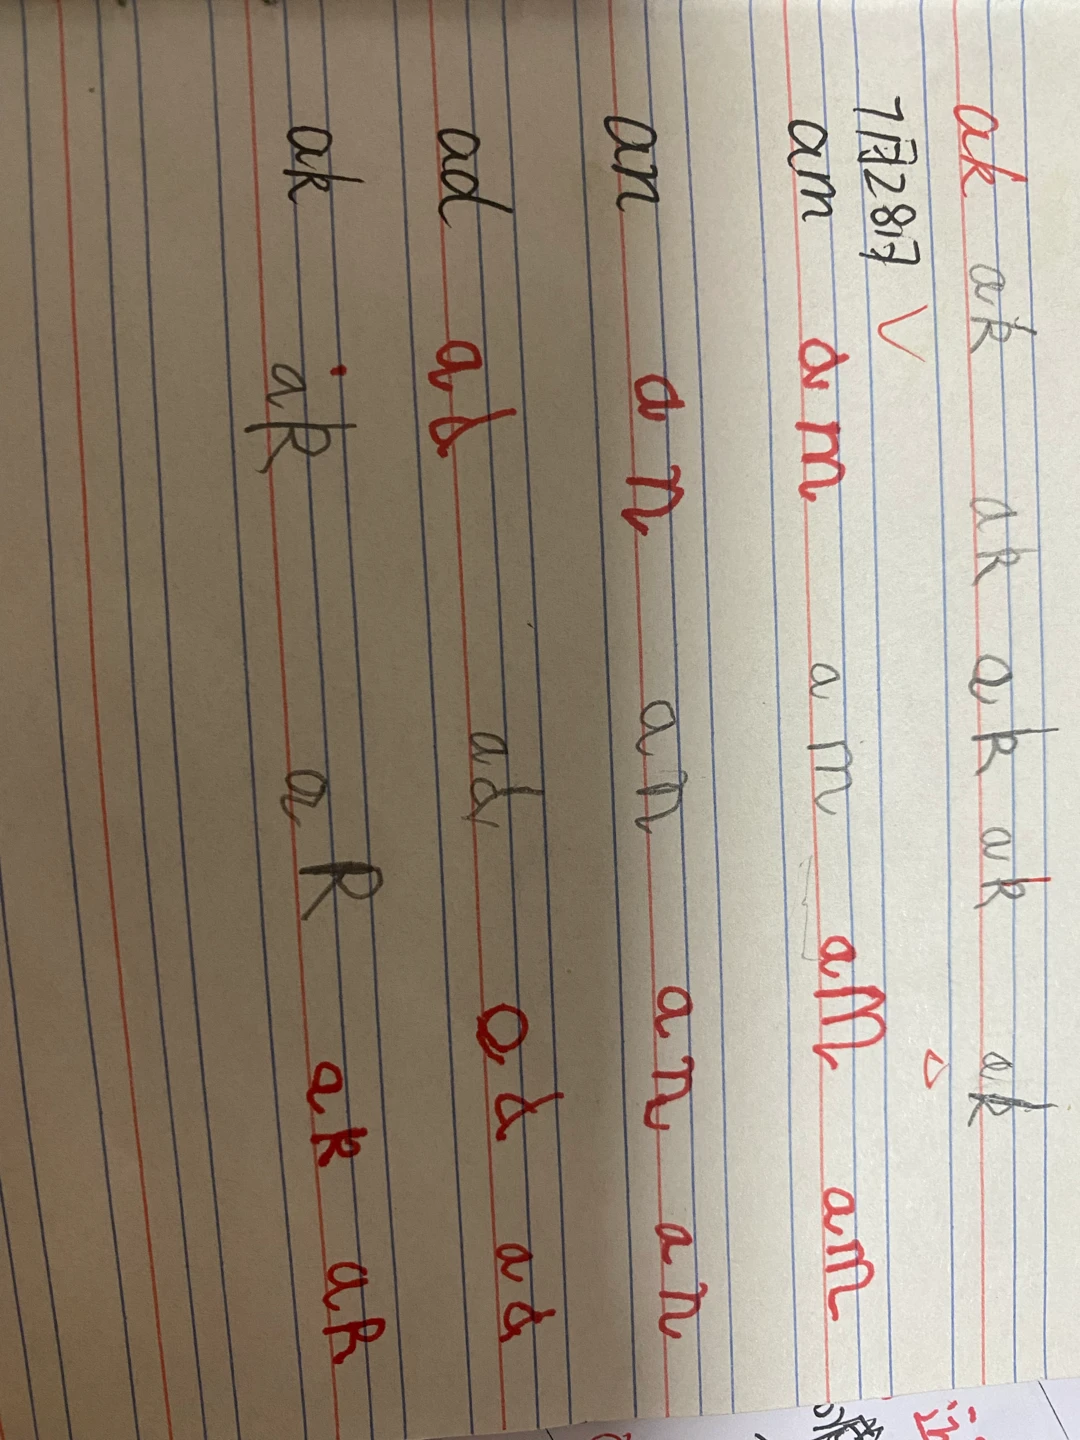 ak ak ak ak ak ak
7月28日
am am am am am
an an an an an
ad ad ad ad ad
ak ak ak ak ak